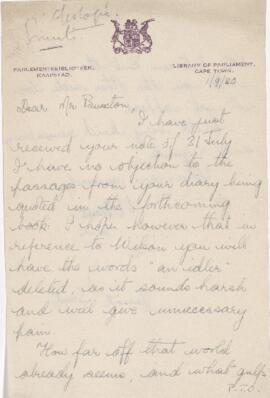 Smuts
PARLEMENTSBIBLIOTEEK,
KAAPSTAD.
LIBRARY OF PARLIAMENT,
CAPE TOWN.
1/9/20
Dear Mr Buxton,
I have just
received your note of 31 July
I have no objection to the
passages from your diary being
quoted in the forthcoming
book. I hope however that in
reference to Wilson you will
have the words "an idler"
deleted, as it sounds harsh
and will give unnecessary
pain.
How far off that world
already seems, and what gulfs
P.T.O.